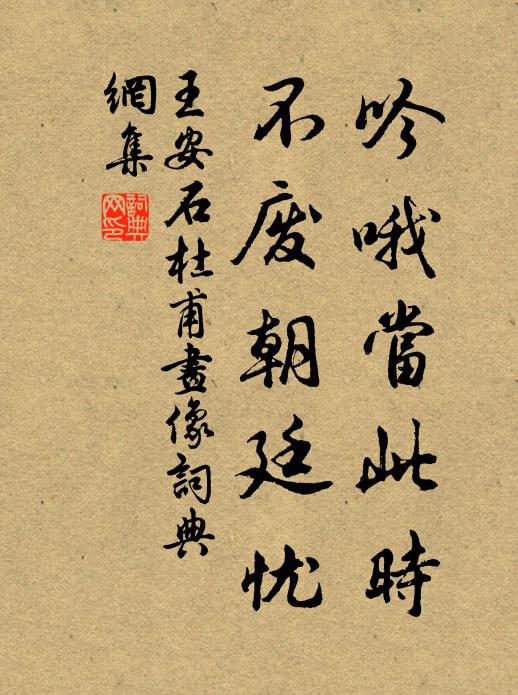 吟哦當此時
不廢朝廷忧
王安石杜甫畫像詞典
網集
詞典
网印